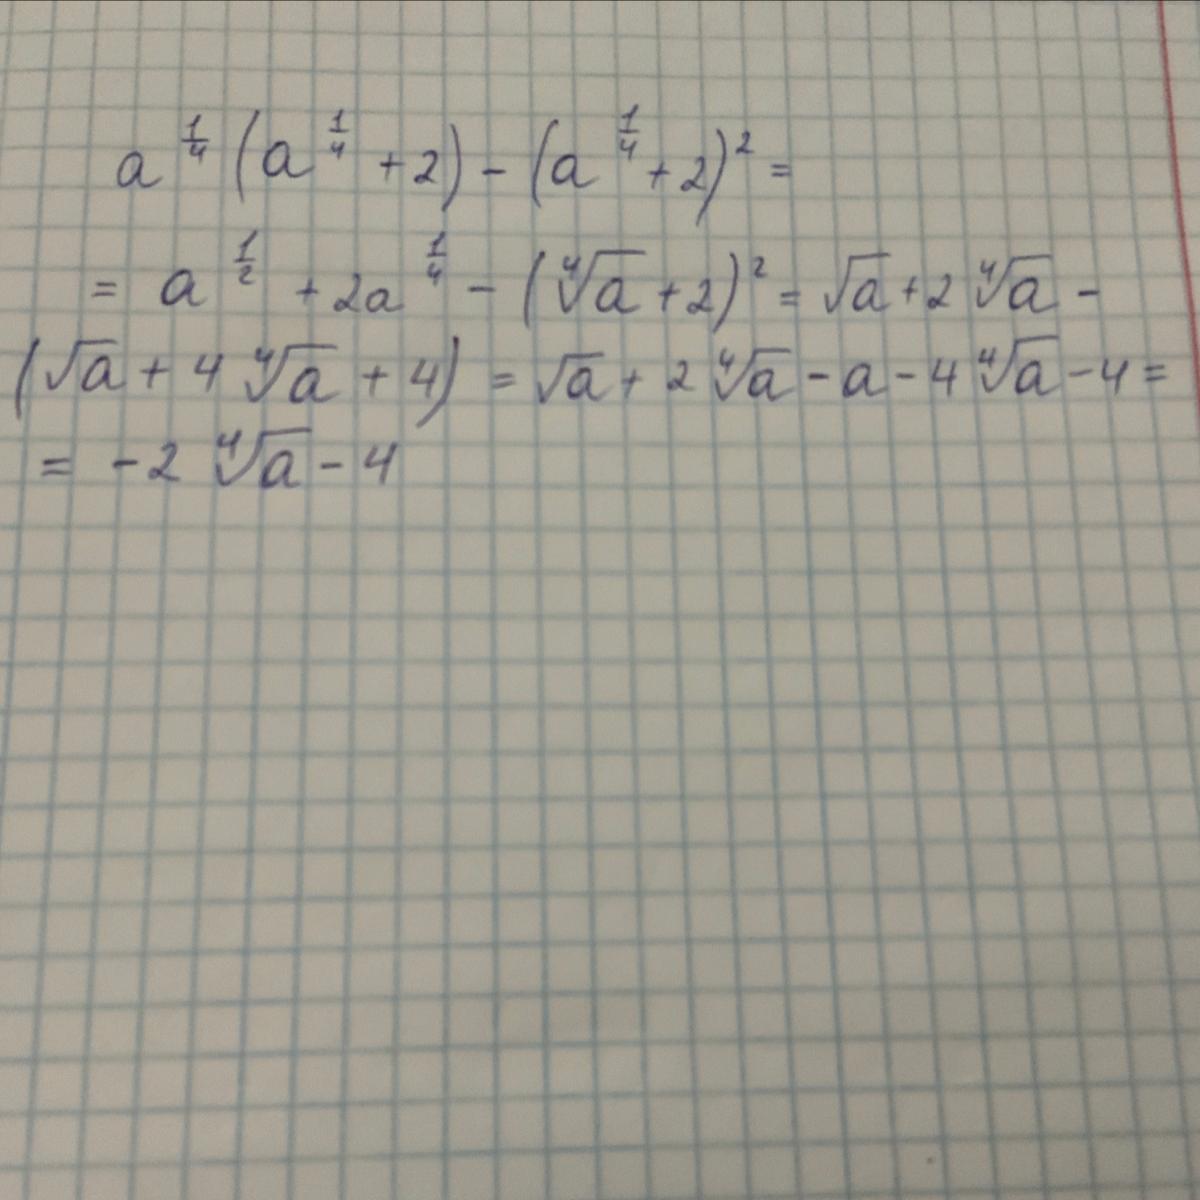 a^{1/4} (a^{1/4} + 2) - (a^{1/4} + 2)^2 =
= a^{1/2} + 2a^{1/4} - (∜a + 2)^2 = √a + 2 ∜a -
(√a + 4 ∜a + 4) = √a + 2 ∜a - a - 4 ∜a - 4 =
= -2 ∜a - 4